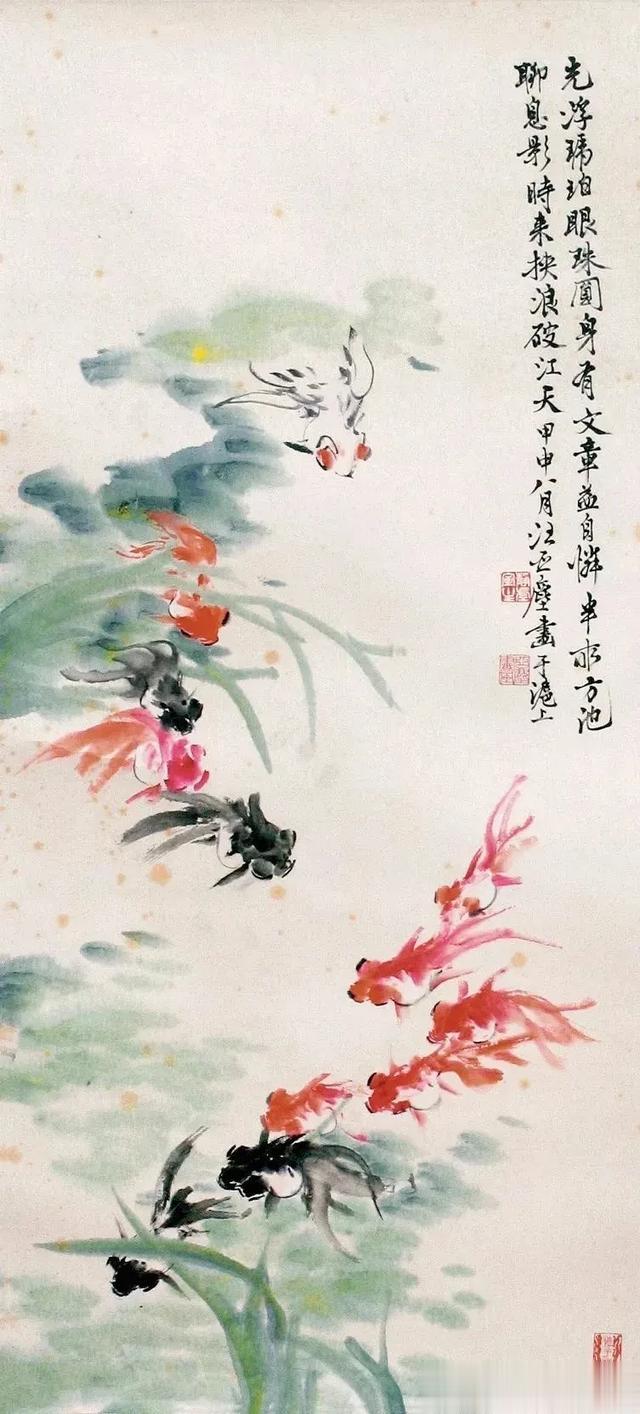 光浮琥珀眼珠圆身有文章益自憐半水方池
聊息影時来挾浪破江天甲申八月汪亞塵畫于滬上